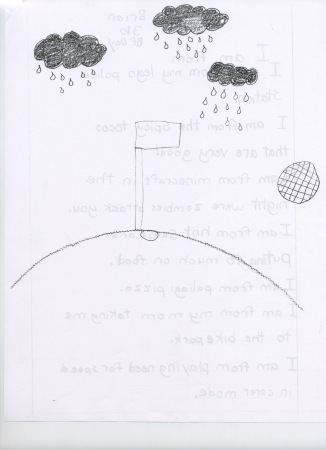 Brian
310
I am from
I am from my lego police
station
I am from the spicy tacos
that are very good
I am from minecraft in the
night were zombies attack you.
I am from hot and
puting to much on food.
I am from pizza.
I am from my mom taking me
to the bike park
I am from playing need for speed
in carer mode.